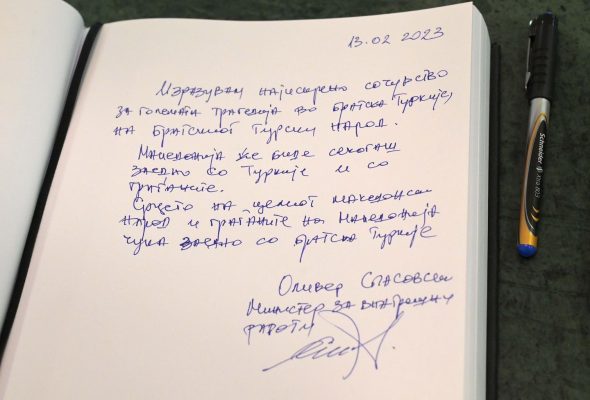 13.02 2023
Изразувам најискрено сочуство
за големата трагедија во братска Туркије,
на братскиот Турски народ.
Македонија ќе биде секогаш
заедно со Туркије и со
граѓаните.
Срцето на целиот македонски
народ и граѓаните на Македонија
чука заедно со братска Туркије
Оливер Спасовски
Министер за внатрешни
работи
Schneider
XTRA 823